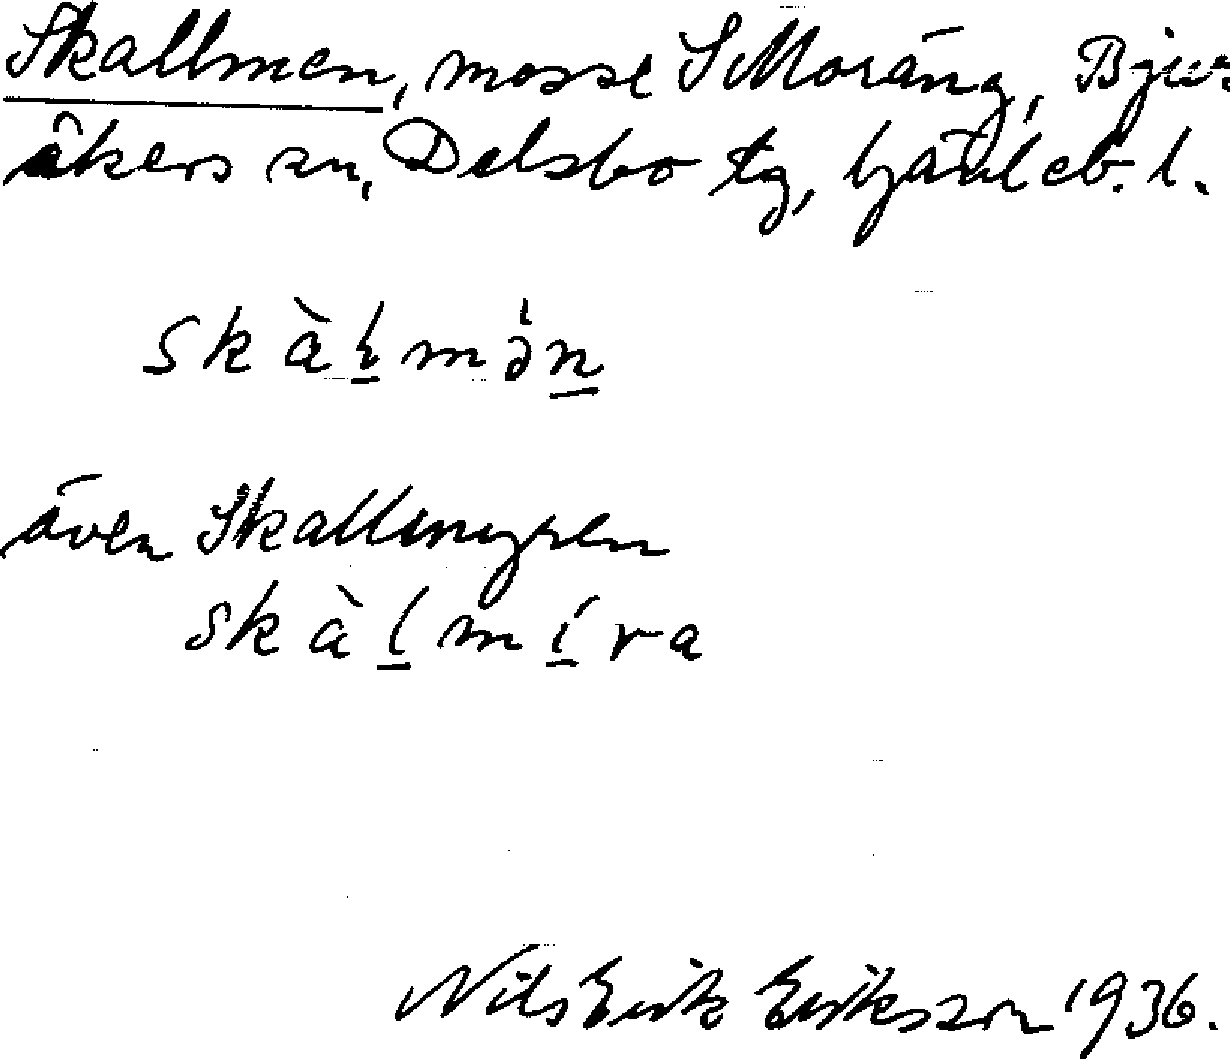 Skallmen, mosse S Moräng, Bjur
åkers sn, Delsbo tg, Gävleb. l.
skàḷmə̀n
även Skallmyren
skàl̠mí̠ra
Nils Erik Eriksson 1936.